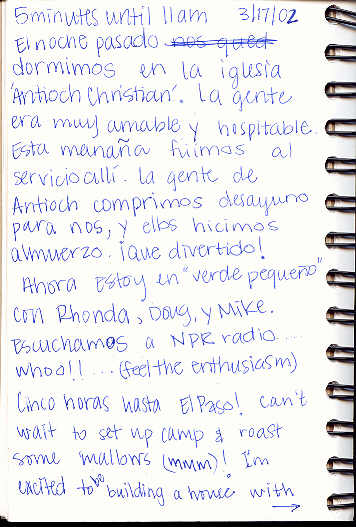 5 minutes until 11am 3/17/02
El noche pasado nos qued
dormimos en la iglesia
'Antioch Christian'. La gente
era muy amable y hospitable.
Esta manaña fuimos al
servicio allí. La gente de
Antioch comprimos desayuno
para nos, y ellos hicimos
almuerzo. ¡que divertido!
Ahora estoy en "verde pequeño"
con Rhonda, Doug, y Mike.
Escuchamos a NPR radio ...
whoo!! ... (feel the enthusiasm)
Cinco horas hasta El Paso! can't
wait to set up camp & roast
some 'mallows (mmm)! I'm
excited to be building a house with →